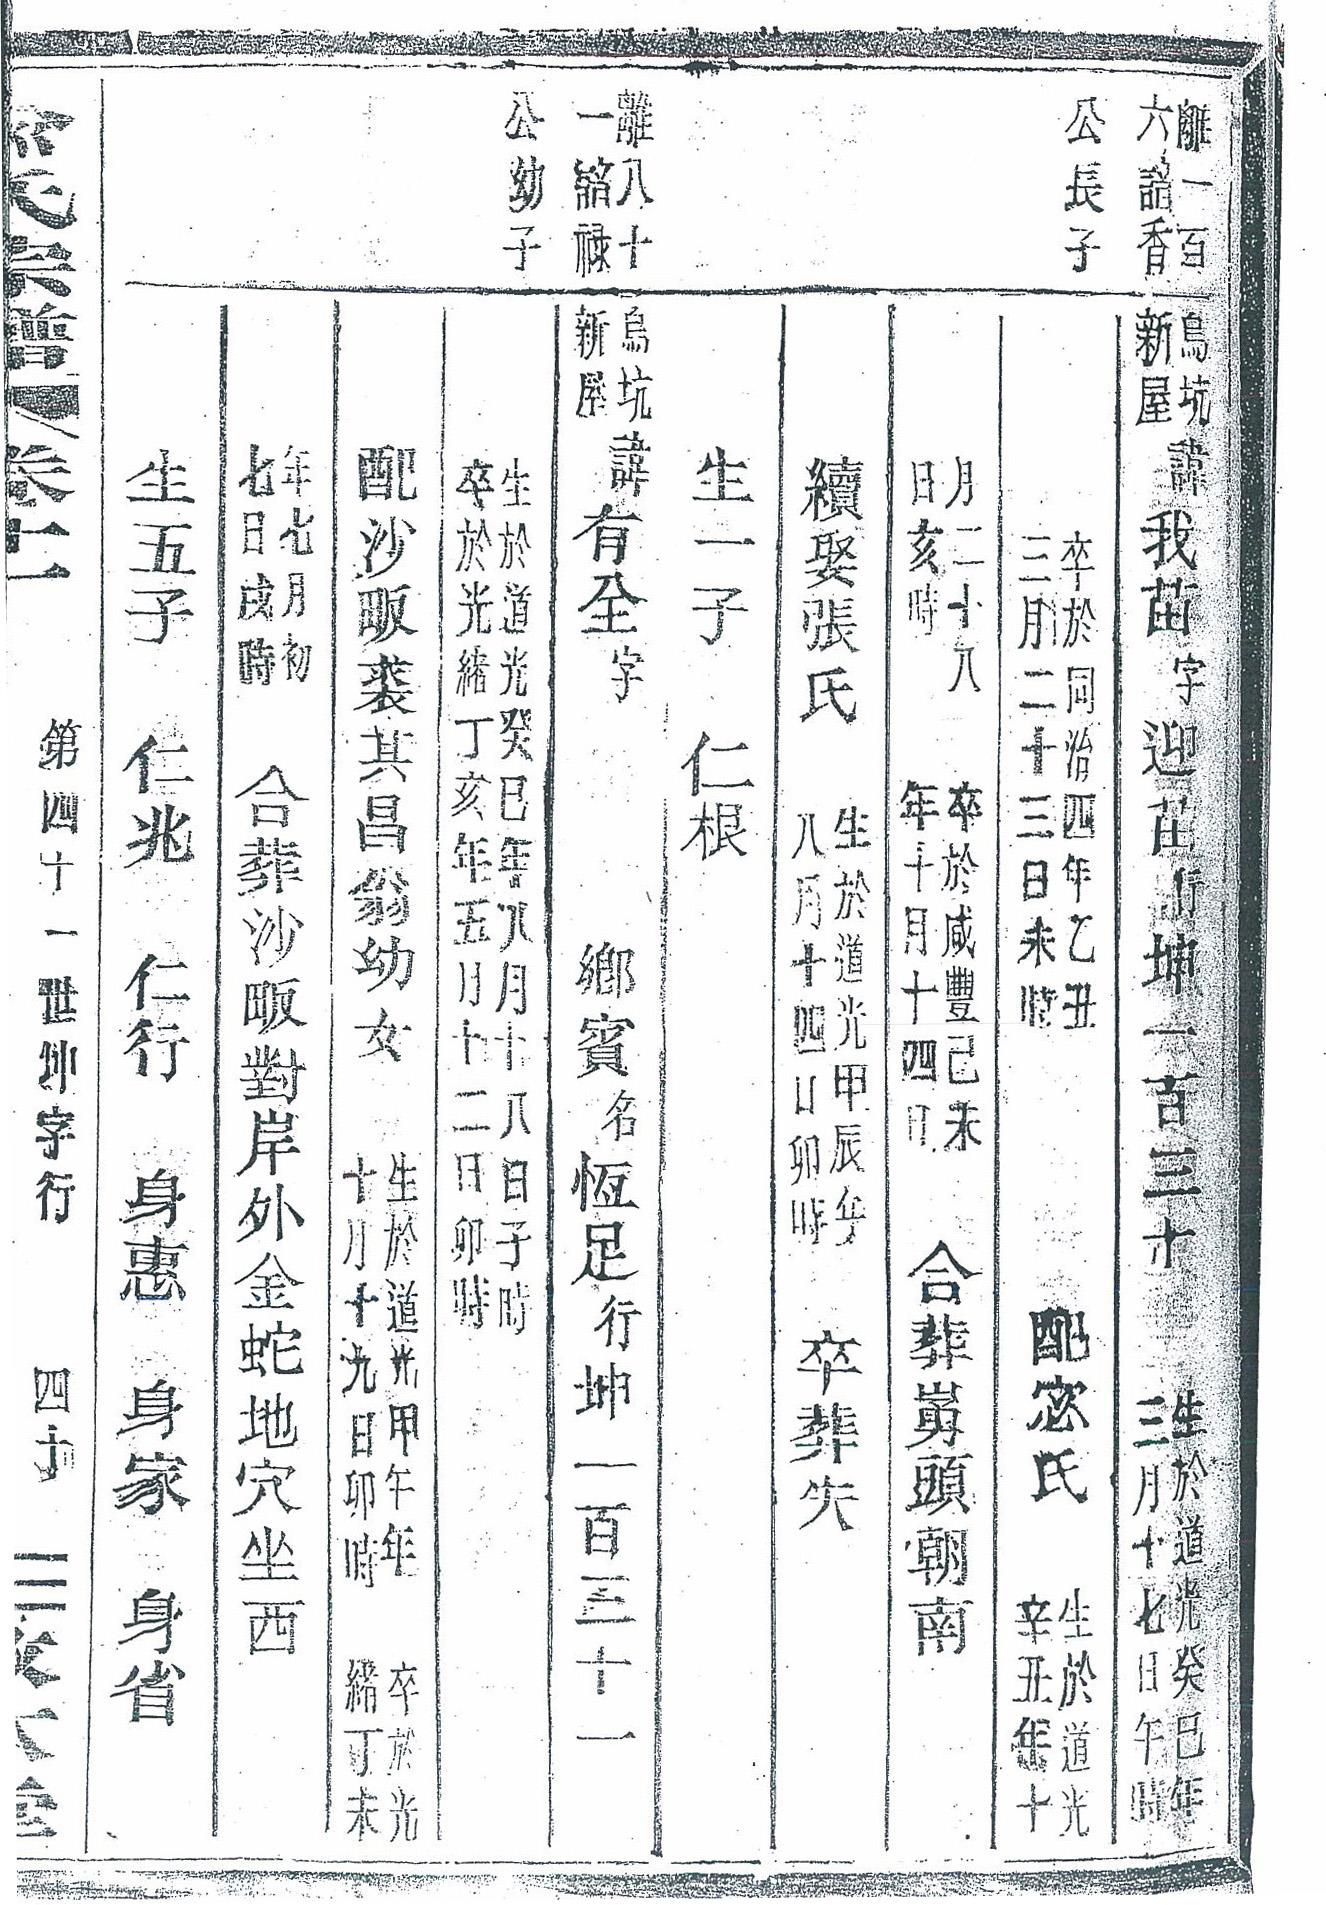 離一百
六諮香
公長子
烏坑
新屋
諱我苗字迎苗行坤一百三十
生於道光癸巳年
三月十七日午時
卒於同治四年乙丑
三月二十三日未時
配宓氏
生於道光
辛丑年十
月二十八
日亥時
卒於咸豐己未
年十月十四日
合葬嵩頭朝南
續娶張氏
生於道光甲辰年
八月十四日卯時
卒葬失
生一子 仁根
離八十
一諮祿
公幼子
烏坑
新屋
諱有全字 鄉賓名恆足行坤一百三十一
生於道光癸巳年八月十八日子時
卒於光緒丁亥年五月十二日卯時
配沙畈裘其昌翁幼女
生於道光甲午年
十月十九日卯時
卒於光
緒丁未
年七月初
七日戌時
合葬沙畈對岸外金蛇地穴坐西
生五子 仁兆 仁行 身惠 身家 身省
氏宗譜 卷十一 第四十一世坤字行 四十